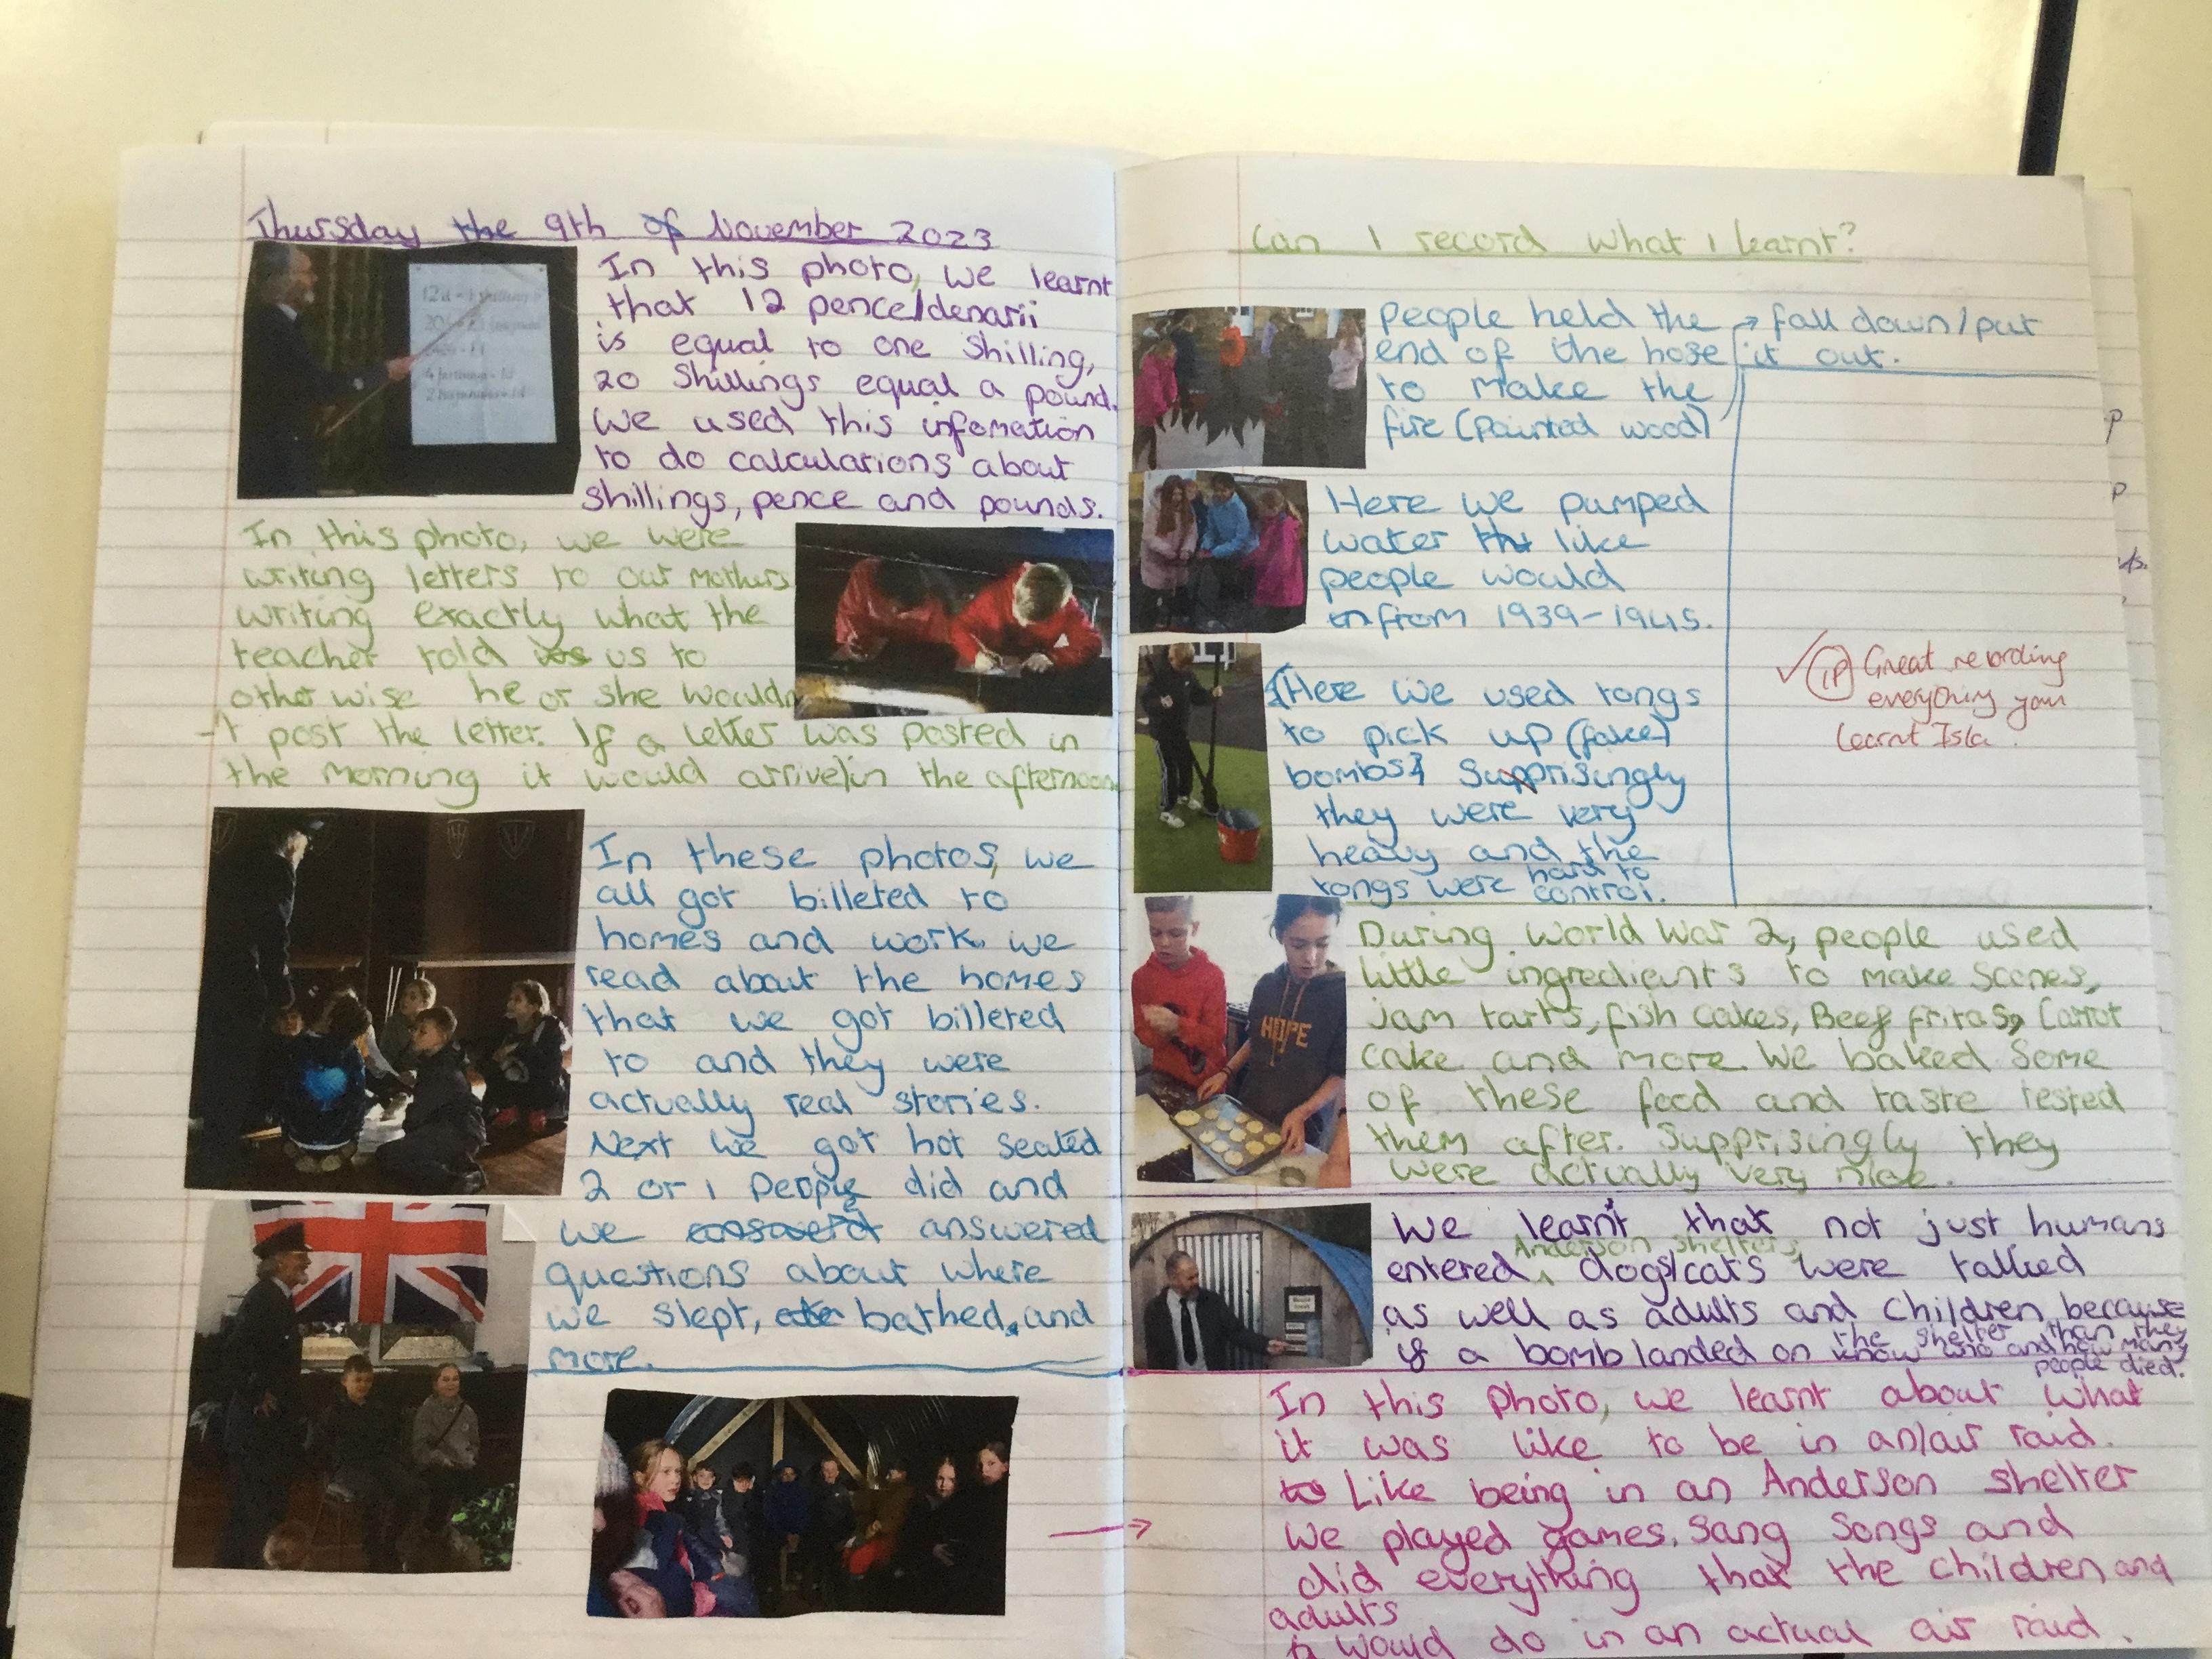 Thursday the 9th of November 2023
In this photo, we learnt
that 12 pence/denarii
is equal to one shilling,
20 shillings equal a pound.
We used this infomation
to do calculations about
shillings, pence and pounds.
12d = 1 shilling
4 farthings = 1d
In this photo, we were
writing letters to our mothers
writing exactly what the
teacher told us to
other wise he or she wouldn
-t post the letter. If a letter was posted in
the morning it would arrive/in the afternoon
In these photos, we
all got billeted to
homes and work. we
read about the homes
that we got billeted
to and they were
actually real stories.
Next we got hot seated
2 or 1 people did and
we answered
questions about where
we slept, bathed, and
more.
Can I record what I learnt?
People held the
end of the hose
to make the
fire (painted wood)
→ fall down/put
it out.
Here we pumped
water like
people would
from 1939-1945.
Here we used tongs
to pick up (fake)
bombs. Supprisingly
they were very
heavy and the
tongs were hard to
control.
✓ IP Great recording
everything you
learnt Isla.
HOPE
During World War 2, people used
little ingredients to make scones,
jam tarts, fish cakes, Beef fritas, Carrot
cake and more. We baked some
of these food and taste tested
them after. Supprisingly they
were actually very nice.
We learnt that not just humans
entered Anderson shelters, dogs/cats were talked
as well as adults and children because
if a bomb landed on the shelter than they
know who and how many
people died.
In this photo, we learnt about what
it was like to be in an/air raid.
Like being in an Anderson shelter
we played games, sang songs and
did everything that the children and
adults
would do in an actual air raid.